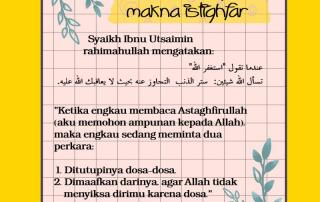 makna istighfar
Syaikh Ibnu Utsaimin
rahimahullah mengatakan:
عندما تقول "استغفر الله"
تسأل الله شيئين: ستر الذنب التجاوز عنه بحيث لا يعاقبك الله عليه.
"Ketika engkau membaca Astaghfirullah
(aku memohon ampunan kepada Allah),
maka engkau sedang meminta dua
perkara:
1. Ditutupinya dosa-dosa.
2. Dimaafkan darinya, agar Allah tidak
menyiksa dirimu karena dosa."